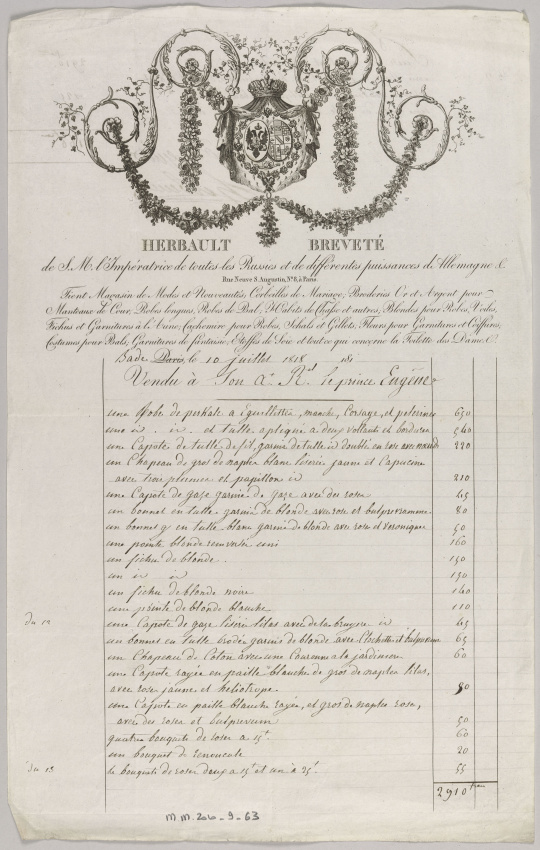 HERBAULT BREVETÉ
de S. M. l'Impératrice de toutes les Russies et de différentes puissances d'Allemagne &
Rue Neuve S. Augustin, Nº 8, à Paris.
Tient Magasin de Modes et Nouveautés, Corbeilles de Mariage, Broderies Or et Argent pour
Manteaux de Cour, Robes longues, Robes de Bal, Habits de Chasse et autres, Blondes pour Robes, Voiles,
Fichus et Garnitures à l'Aune, Cachemire pour Robes, Schals et Gillets, Fleurs pour Garnitures et Coëffures,
Costumes pour Bals, Garnitures de fantaisie, Etoffes de Soie et tout ce qui concerne la Toilette des Dames &.
Bade Paris, le 10 juillet 1818 181
Vendu à Son A. R.le le prince Eugène
une Robe de perkale a Eguillettes, manche, Corsage, et pelerine 650
une id. id. et tulle apliqué a deux vollants et bordures 540
une Capote de tulle de fil, garnie de tulle id doublé en rose avec nœuds 220
un Chapeau de gros de naples blanc liserée jaune et Capucine
avec trois plumes et papillon id 210
une Capote de gaze garnie de gaze avec des roses 45
un bonnet en tulle garnie de blonde avec rose et 80
un bonnet q en tulle blanc garnie de blonde avec rose et veronique 50
une pointe blonde uni 160
un fichu de blonde 150
un id id 130
un fichu de blonde noire 140
une pointe de blonde blanche 110
du 12 une Capote de gaze liserée lilas avec de la bruyere id 45
un bonnet en tulle brodée garnie de blonde avec Clochette et 65
un Chapeau de Coton avec une Couronne a la jardiniere 60
une Capote rayée en paille blanche de gros de naples lilas,
avec rose jaune et heliotrope 50
une Capote en paille blanche rayée, et gros de naples rose,
avec des roses et 50
quatre bouquets de roses a 15f. 60
un bouquet de renoncule 20
du 13 de bouquets de roses deux a 15f et un a 25f. 55
2910 francs
MM.200-9-63